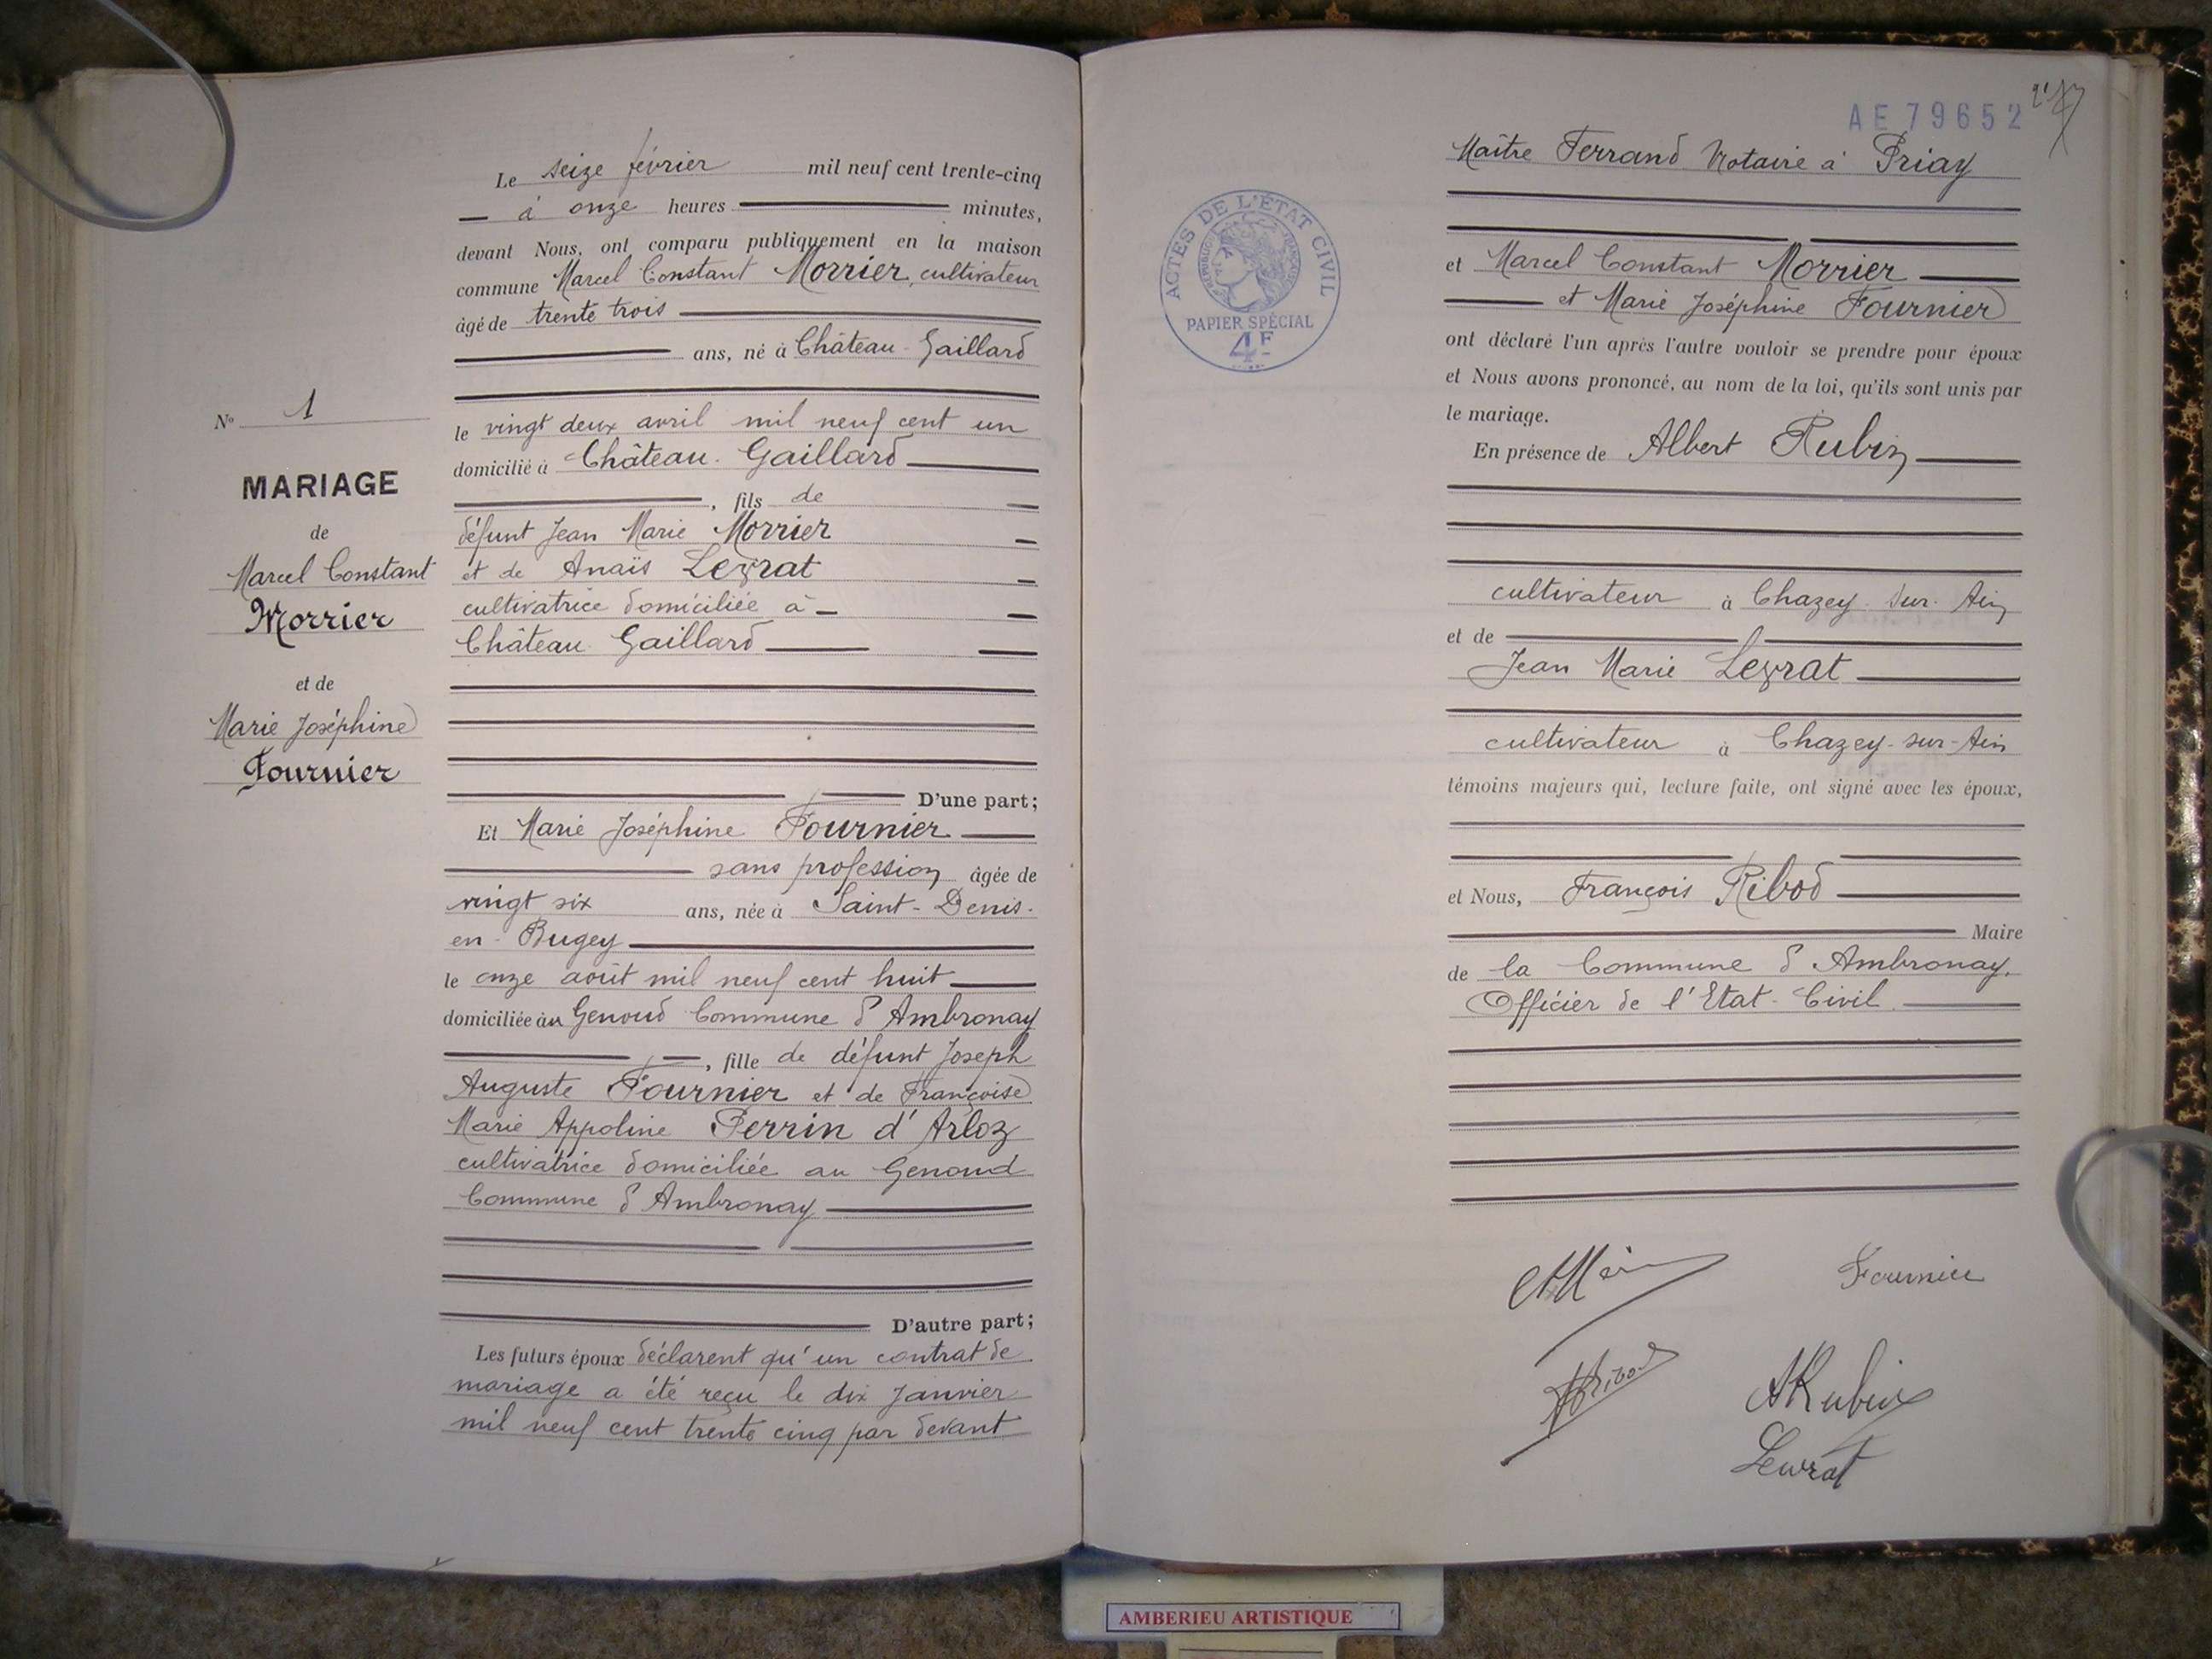 Le seize février mil neuf cent trente-cinq
à onze heures minutes,
devant Nous, ont comparu publiquement en la maison
commune Marcel Constant Morrier, cultivateur
âgé de trente trois
ans, né à Château-Gaillard
le vingt deux avril mil neuf cent un
domicilié à Château-Gaillard
, fils de
défunt Jean Marie Morrier
et de Anaïs Leyrat
cultivatrice domiciliée à
Château-Gaillard
D'une part;
Et Marie Joséphine Fournier
sans profession âgée de
vingt six ans, née à Saint-Denis-
en-Bugey
le onze août mil neuf cent huit
domiciliée au Genoud Commune d'Ambronay
, fille de défunt Joseph
Auguste Fournier et de Françoise
Marie Appoline Perrin d'Arloz
cultivatrice domiciliée au Genoud
Commune d'Ambronay
D'autre part;
Les futurs époux déclarent qu'un contrat de
mariage a été reçu le dix Janvier
mil neuf cent trente cinq par devant
No 1
MARIAGE
de
Marcel Constant
Morrier
et de
Marie Joséphine
Fournier
AE 79652
Maître Ferrand Notaire à Priay
et Marcel Constant Morrier
et Marie Joséphine Fournier
ont déclaré l'un après l'autre vouloir se prendre pour époux
et Nous avons prononcé, au nom de la loi, qu'ils sont unis par
le mariage.
En présence de Albert Rubin
cultivateur à Chazey-sur-Ain
et de
Jean Marie Leyrat
cultivateur à Chazey-sur-Ain
témoins majeurs qui, lecture faite, ont signé avec les époux,
et Nous, François Ribod
Maire
de la Commune d'Ambronay.
Officier de l'Etat-Civil
ACTES DE L'ÉTAT CIVIL
RÉPUBLIQUE FRANÇAISE
PAPIER SPÉCIAL
4F
Fournier
Ribod
ARubin
Levrat
AMBERIEU ARTISTIQUE